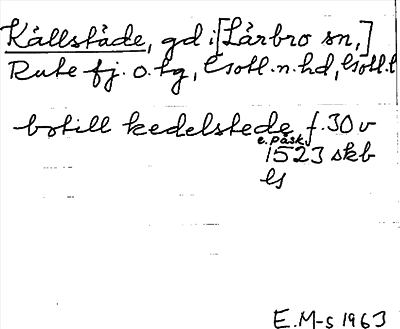 Källståde, gd i [Lärbro sn,]
Rute fj. o. tg, Gotl.n.hd, Gotl.l
botill kedelstede f. 30 v
e. påsk
1523 skb
ls
E.M-s 1963